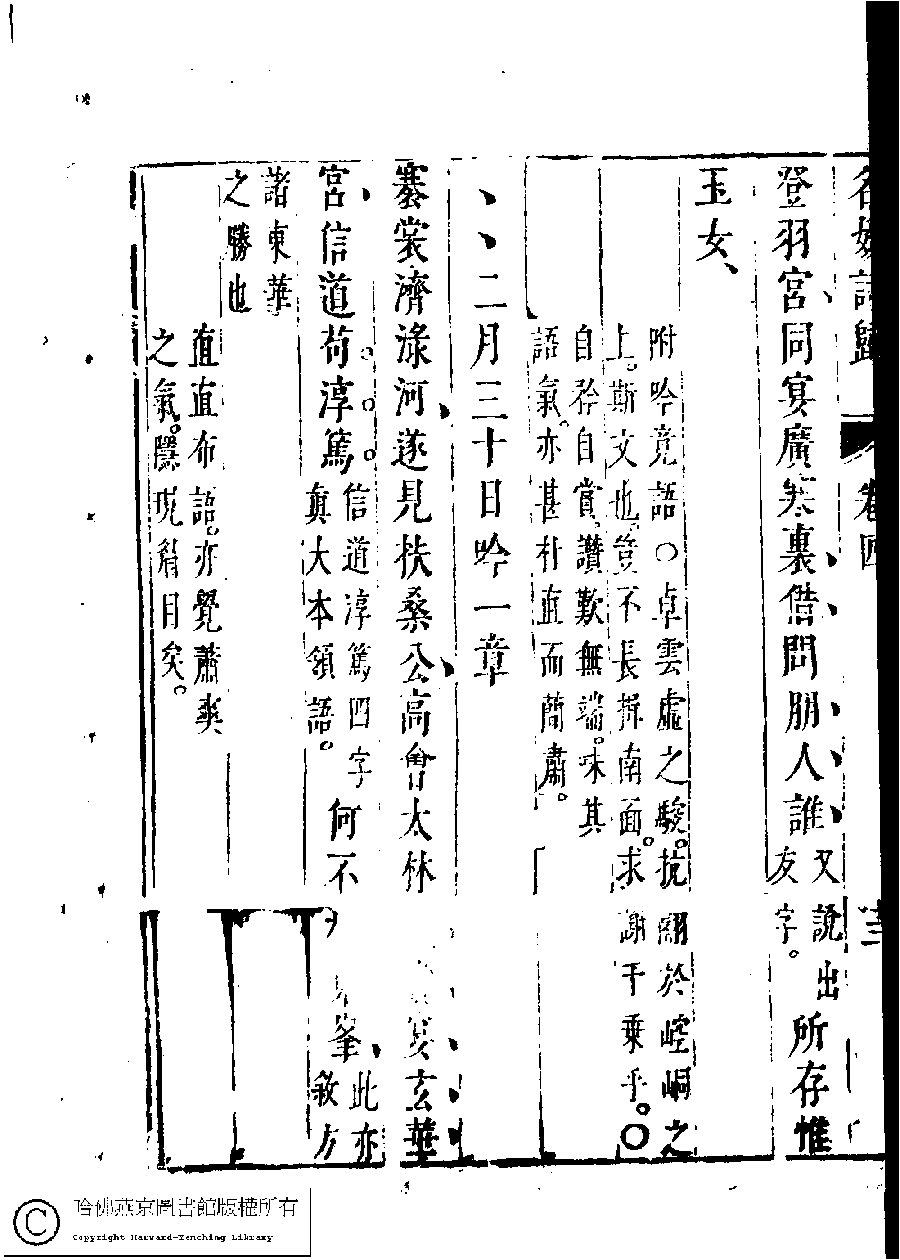 名媛詩歸 卷四 十三
登羽宮同宴廣寒裏借問朋人誰又說出友字。所存惟
玉女、
附吟竟語○卓雲虛之駿。抗翮於崆峒之
上。斯文也。豈不長揖南面。求謝千乘乎。○
自矜自賞。讚歎無端。味其
語氣。亦甚朴直而蕳肅。
二月三十日吟一章
褰裳濟淥河遂見扶桑公高會太林宴玄華
宮信道苟淳篤信道淳篤四字真大本領語。何不峯此亦敘方
諸東華
之勝也
直直布語。亦覺蕭爽
之氣。隱現眉目矣。
哈佛燕京圖書館版權所有
Copyright Harvard-Yenching Library